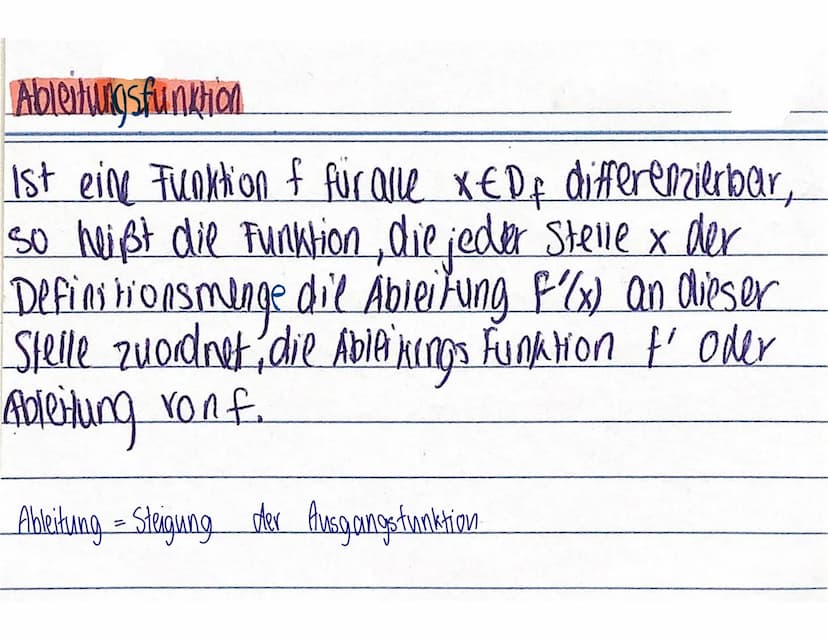 Ableitungsfunktion
Ist eine Funktion f für alle x ∈ D_f differenzierbar,
so heißt die Funktion, die jeder Stelle x der
Definitionsmenge die Ableitung F'(x) an dieser
Stelle zuordnet, die Ableitungs Funktion f' oder
Ableitung von f.
Ableitung = Steigung der Ausgangsfunktion